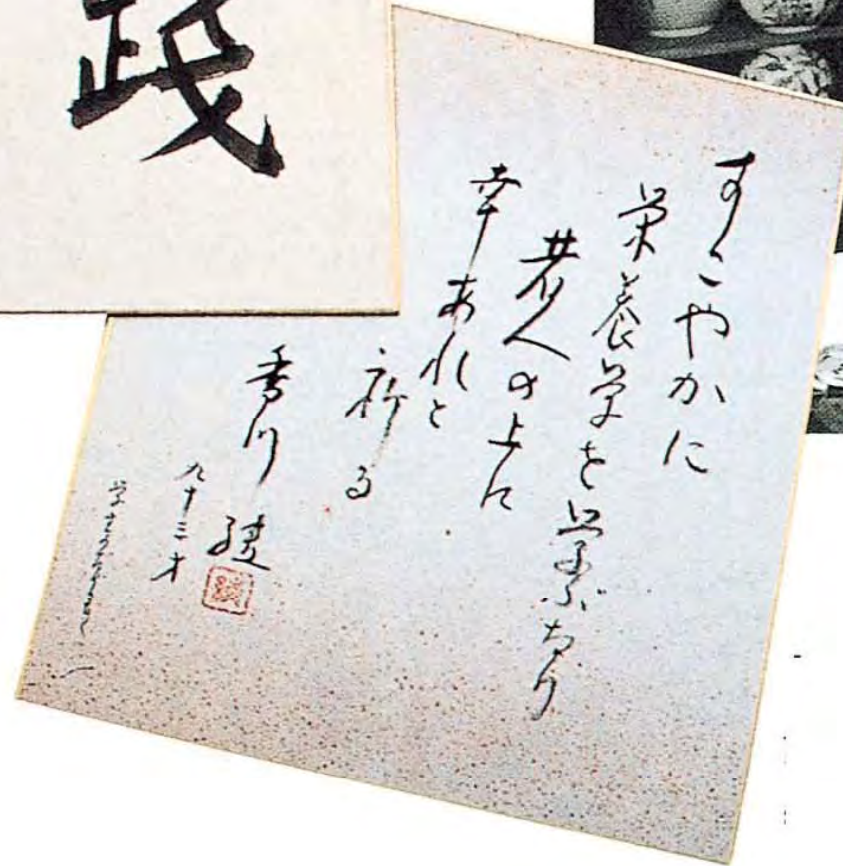 すこやかに
栄養学を学ぶなり
若人の上に
幸あれと
祈る
香川 綾
九十三才
践